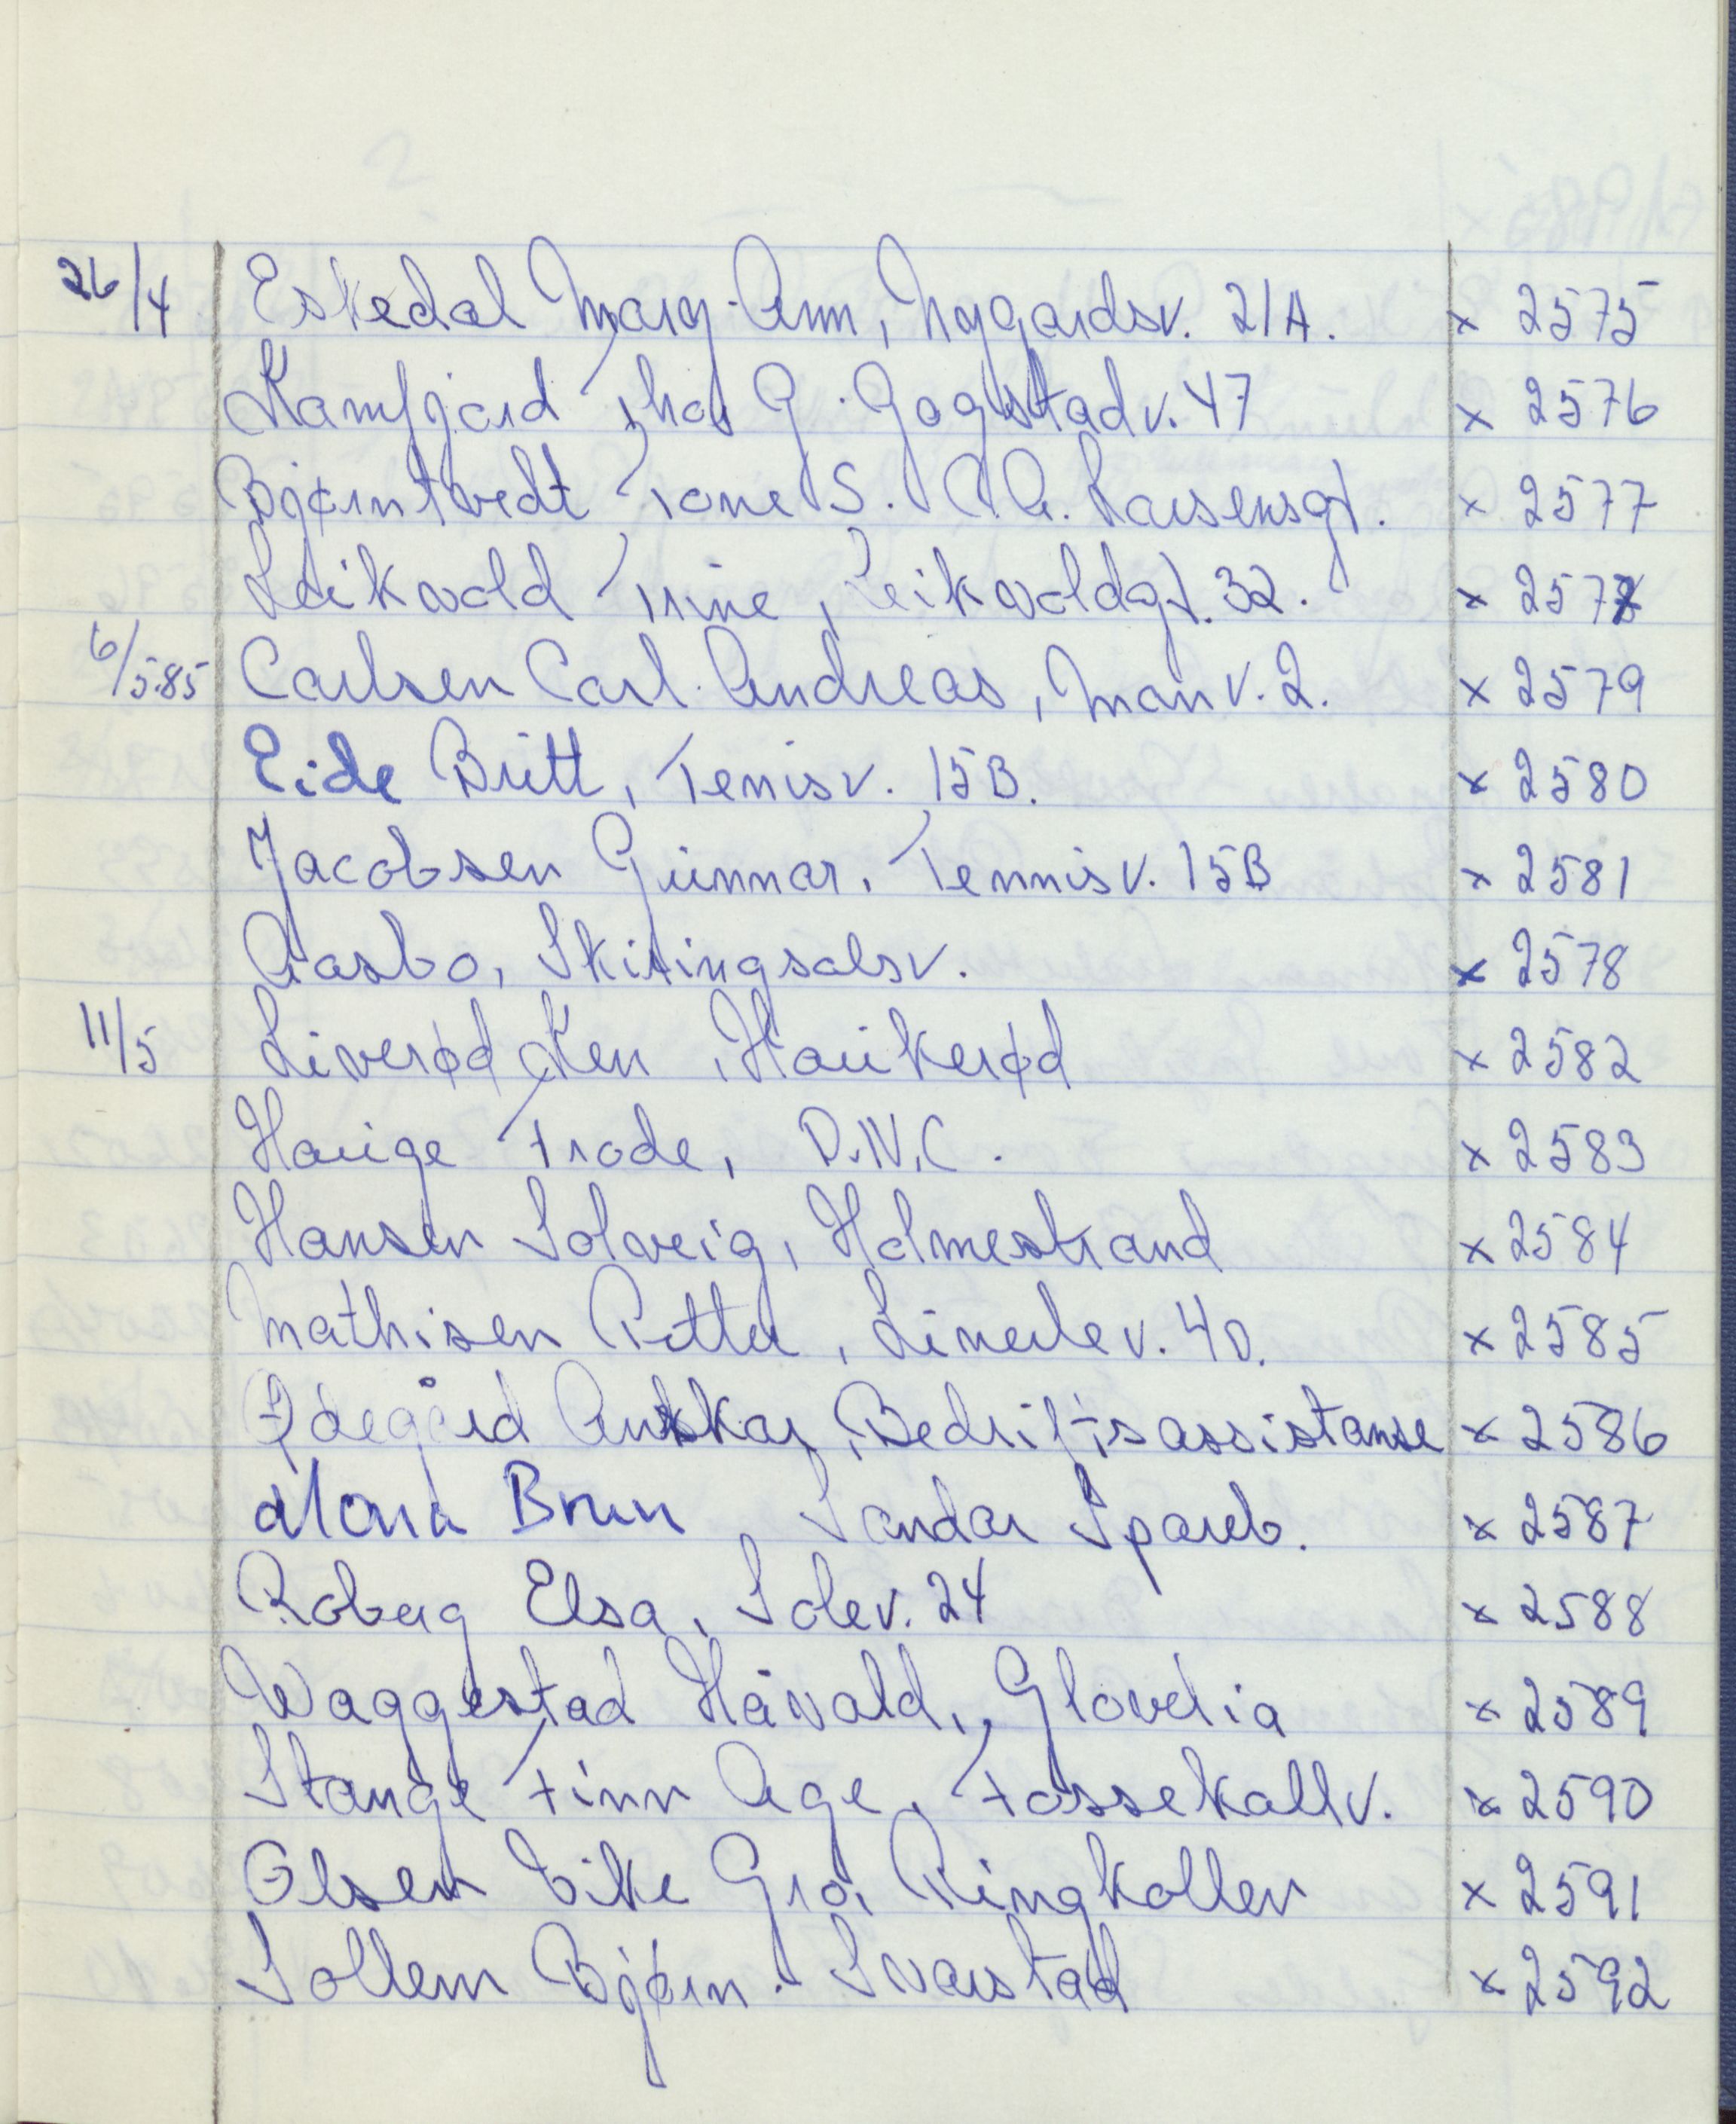 26/4 Eskedal Mary-Ann, Nygårdsv. 21A. x 2575
Kamfjord Thor G. Gogstadv. 47 x 2576
Bjørntvedt Tone S. C.A. Larsensgt. x 2577
Leikvold Trine, Leikvoldgt. 32. x 257
6/5.85 Carlsen Carl-Andreas, Manv. 2. x 2579
Eide Britt, Tenisv. 15B. x 2580
Jacobsen Gunnar, Tennisv. 15B x 2581
Aasbo, Skiringsalsv. x 2578
11/5 Liverød Ken, Haukerød x 2582
Hauge Frode, D.N.C. x 2583
Hansen Solveig, Holmestrand x 2584
Mathisen Petter, Linerlev. 40. x 2585
Ødegård Anskar, Bedriftsassistanse x 2586
Mona Brun, Sandar Spareb. x 2587
Roberg Elsa, Solev. 24 x 2588
Waggestad Håvald, Glovdia x 2589
Stange Finn Age, Fossekallv. x 2590
Olsen Eike Gro, Ringkollen x 2591
Sollem Bjørn. Svarstad x 2592